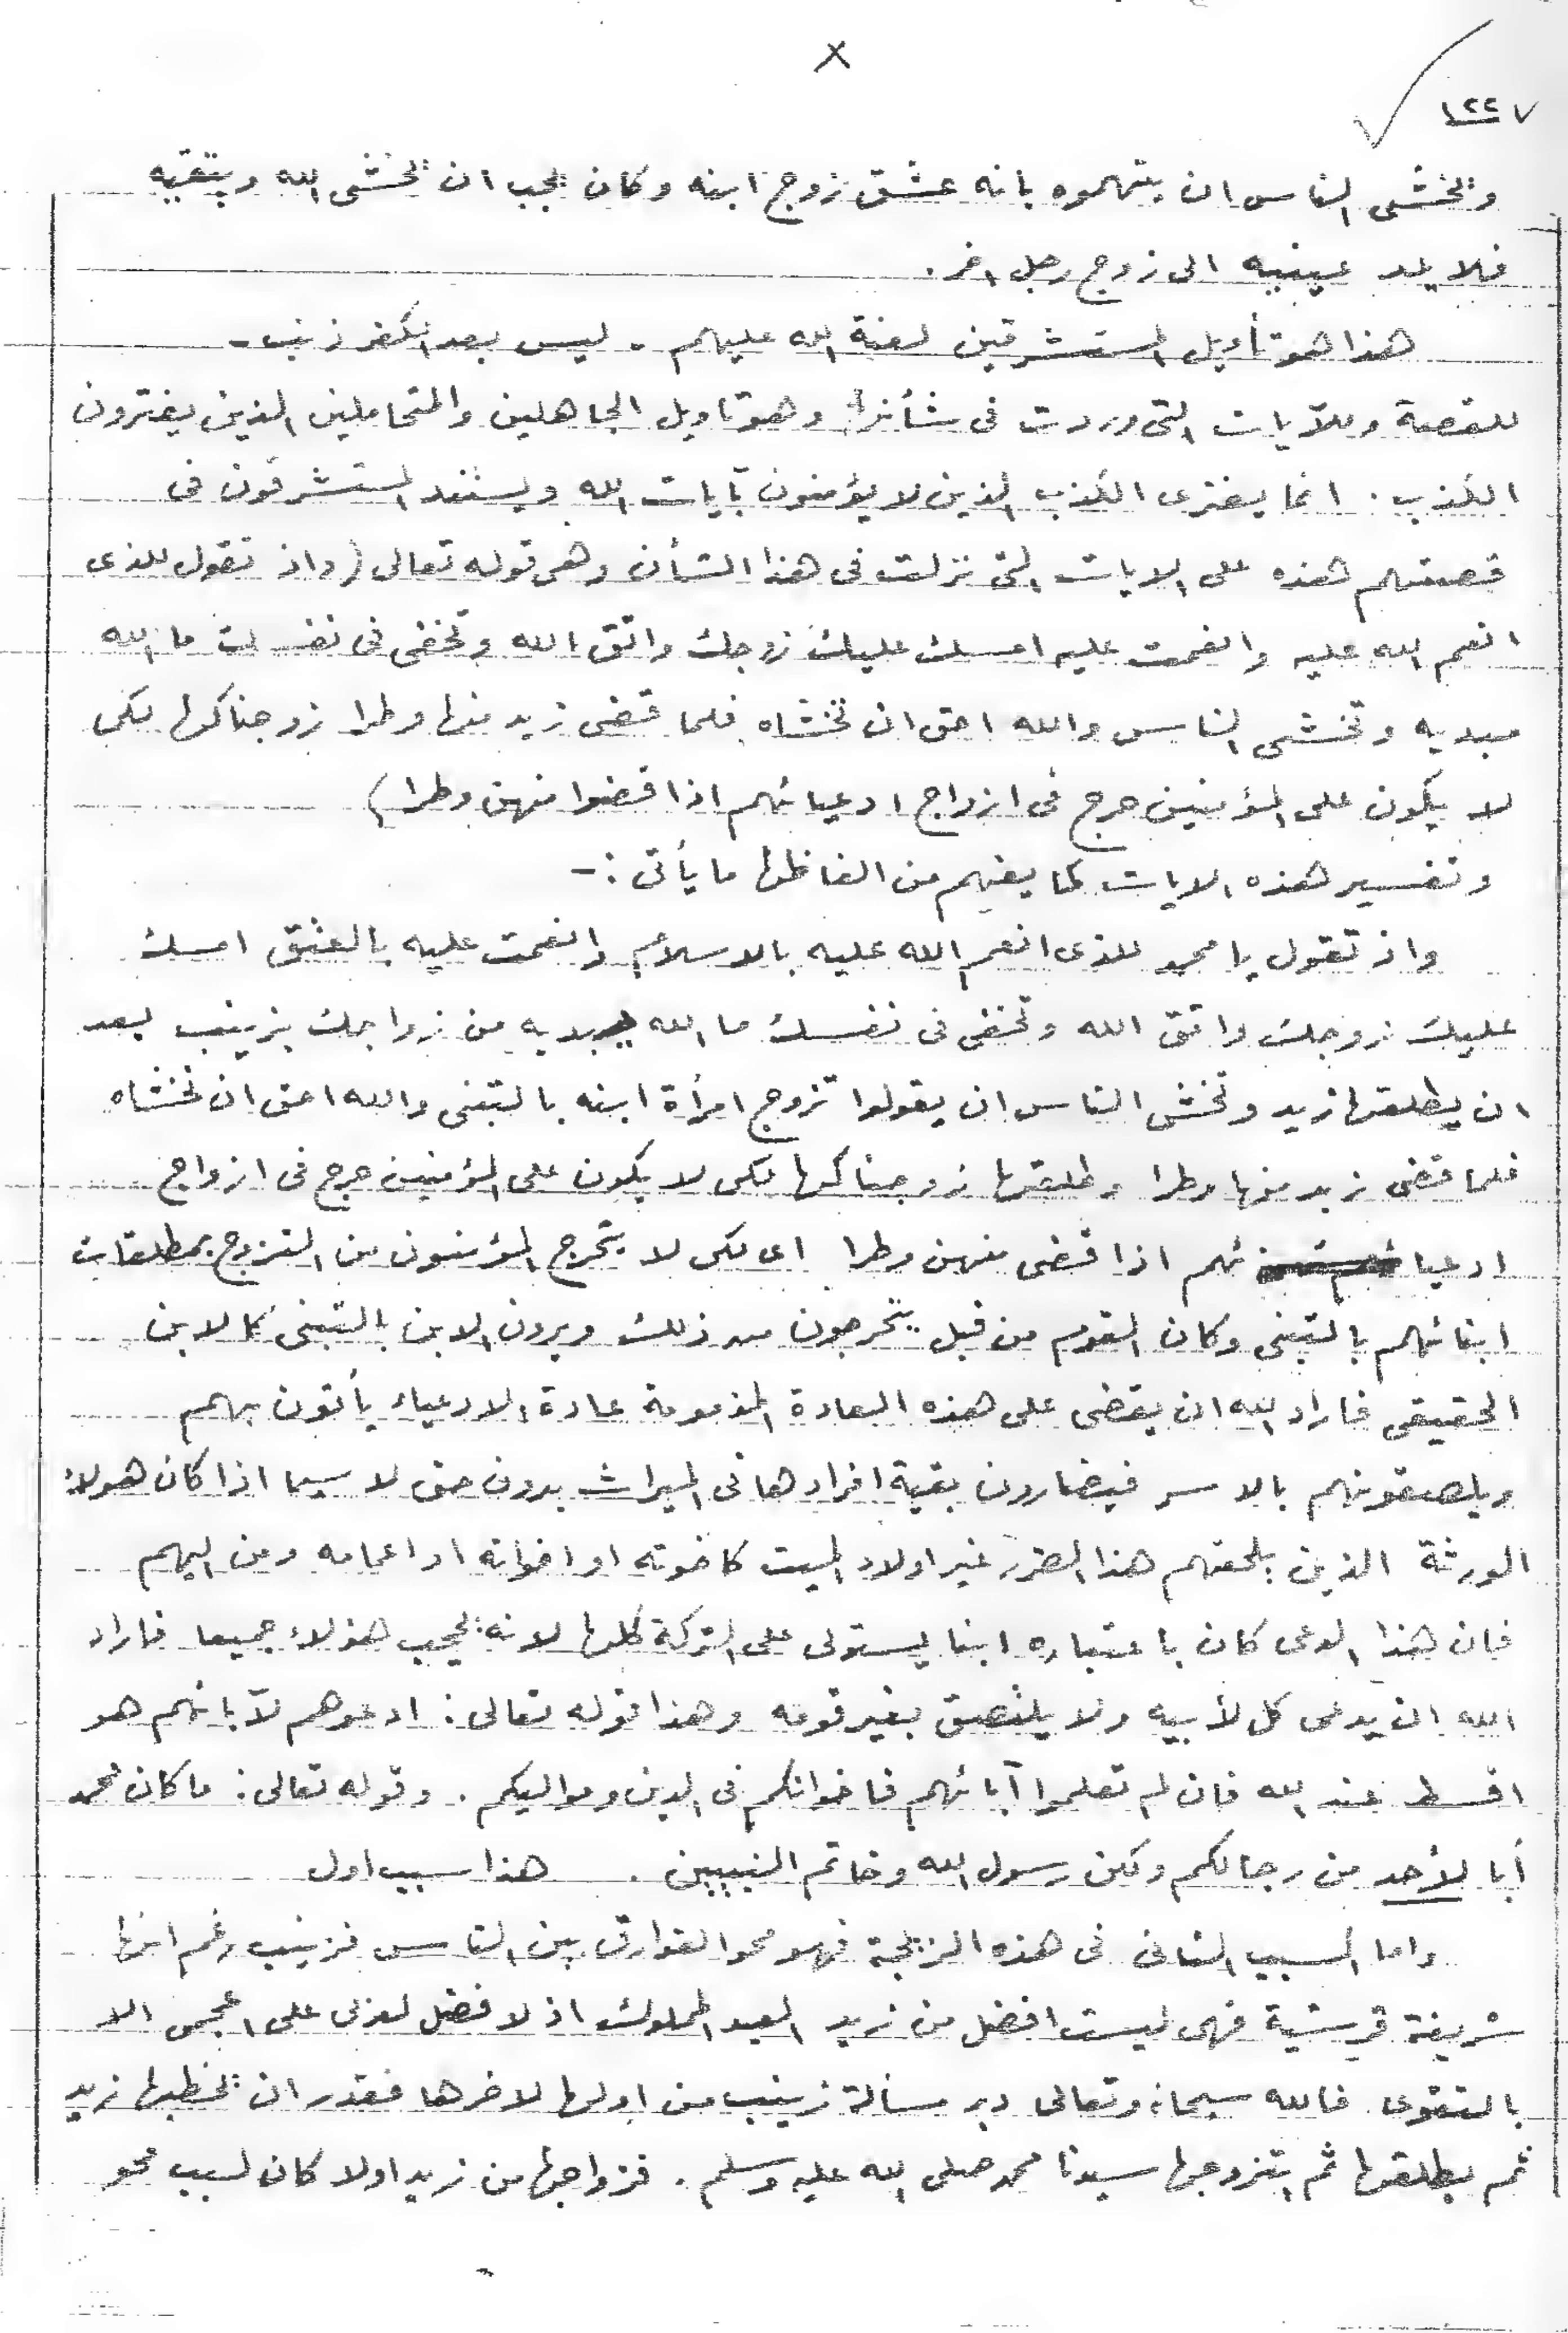 x
١٢٢٧
ويخشى الناس ان يتهموه بانه عشق زوج ابنه وكان يجب ان يخشى الله ويتقيه
فلا يمد عينيه الى زوج رجل اخر .
هذا هو تأويل المستشرقين لعنة الله عليهم - ليس بعد الكفر ذنب -
للقصة وللآيات التى وردت فى شأنها وهو تاويل الجاهلين والمتحاملين الذين يفترون
الكذب . انما يفترى الكذب الذين لا يؤمنون بآيات الله ويستند المستشرقون فى
قصتهم هذه على الايات التى نزلت فى هذا الشأن وهى قوله تعالى (واذ تقول للذى
انعم الله عليه وانعمت عليه امسك عليك زوجك واتق الله وتخفى فى نفسك ما الله
مبديه وتخشى الناس والله احق ان تخشاه فلما قضى زيد منها وطرا زوجناكها لكى
لا يكون على المؤمنين حرج فى ازواج ادعيائهم اذا قضوا منهن وطرا)
وتفسير هذه الايات كما يفهم من الفاظها ما يأتى :-
واذ تقول يا محمد للذى انعم الله عليه بالاسلام وانعمت عليه بالعتق امسك
عليك زوجك واتق الله وتخفى فى نفسك ما الله مبديه من زواجك بزينب بعد
ان يطلقها زيد وتخشى الناس ان يقولوا تزوج امرأة ابنه بالتبنى والله احق ان تخشاه
فلما قضى زيد منها وطرا وطلقها زوجناكها لكى لا يكون على المؤمنين حرج فى ازواج
ادعيائهم اذا قضى منهن وطرا اى لكى لا يتحرج المؤمنون من التزوج بمطلقات
ابنائهم بالتبنى وكان القوم من قبل يتحرجون من ذلك ويرون الابن بالتبنى كالابن
الحقيقى فاراد الله ان يقضى على هذه العادة المذمومة عادة الادعياء يأتون بهم
ويلصقونهم بالاسر فيضارون بقية افرادها فى الميراث بدون حق لا سيما اذا كان هولاء
الورثة الذين يلحقهم هذا الضرر غير اولاد الميت كاخوته او اخواته او اعمامه ومن اليهم
فان هذا الدعى كان باعتباره ابنا يستولى على التركة كلها لانه يحجب هؤلاء جميعا فاراد
الله ان يدعى كل لأبيه ولا يلتصق بغير قومه وهذا قوله تعالى : ادعوهم لآبائهم هو
اقسط عند الله فان لم تعلموا آبائهم فاخوانكم فى الدين ومواليكم . وقوله تعالى : ما كان محمد
أبا لأحد من رجالكم ولكن رسول الله وخاتم النبيين . هذا سبب اول
واما السبب الثانى فى هذه الزيجة فهو محو الفوارق بين الناس فزينب رغم انها
شريفة قرشية فهى ليست افضل من زيد العبد المملوك اذ لا فضل لعربى على اعجمى الا
بالتقوى فالله سبحانه وتعالى دبر مسألة زينب من اولها لاخرها فقدر ان يخطبها زيد
ثم يطلقها ثم يتزوجها سيدنا محمد صلى الله عليه وسلم . فزواجها من زيد اولا كان لسبب محو